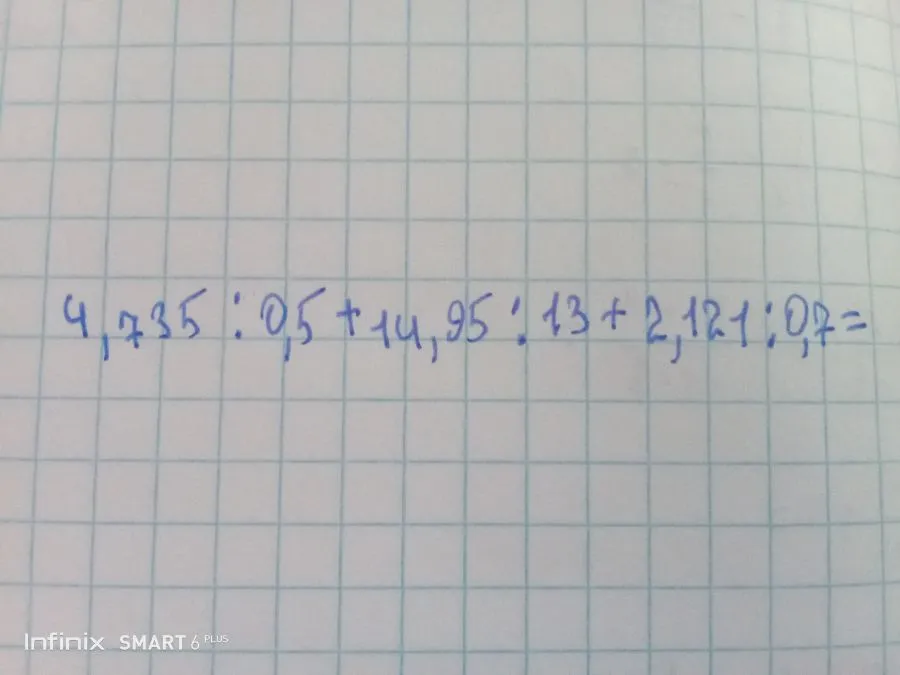 4,735 : 0,5 + 14,95 : 13 + 2,121 : 0,7 =
Infinix SMART 6 PLUS